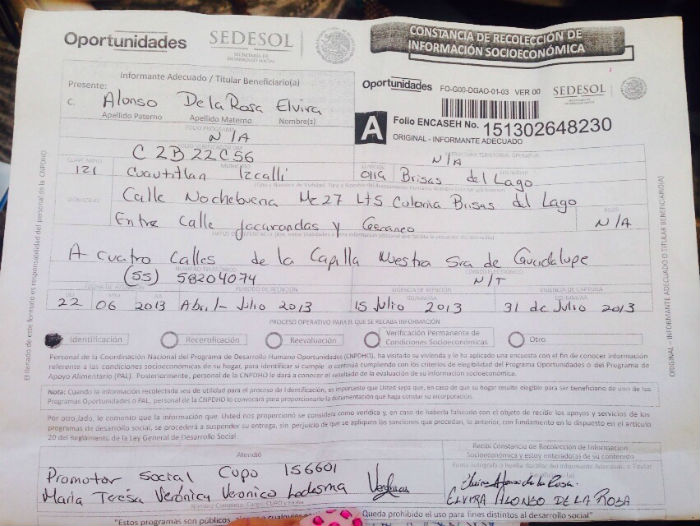 Oportunidades
SEDESOL
SECRETARÍA DE DESARROLLO SOCIAL
CONSTANCIA DE RECOLECCIÓN DE
INFORMACIÓN SOCIOECONÓMICA
Informante Adecuado / Titular Beneficiario(a)
Presente:
C. Alonso De la Rosa Elvira
Apellido Paterno Apellido Materno Nombre(s)
Oportunidades FO-G00-DGAO-01-03 VER 00 SEDESOL
A
Folio ENCASEH No. 151302648230
ORIGINAL - INFORMANTE ADECUADO
N/A
C2B22C56
N/A
121 Cuautitlan Izcalli
Brisas del Lago
Calle Nochebuena Mz 27 Colonia Brisas del Lago
N/A
Entre calle Jacarandas y
A cuatro calles de la Capilla Nuestra Sra de Guadalupe
(55) 58204074
N/T
22 06 2013 Abril - Julio 2013 15 Julio 2013 31 de Julio 2013
PROCESO OPERATIVO PARA EL QUE SE RECABA INFORMACIÓN
Identificación
Recertificación
Reevaluación
Verificación Permanente de
Condiciones Socioeconómicas
Otro
Personal de la Coordinación Nacional del Programa de Desarrollo Humano Oportunidades (CNPDHO), ha visitado su vivienda y le ha aplicado una encuesta con el fin de conocer información
referente a las condiciones socioeconómicas de su hogar, para identificar si cumple o continúa cumpliendo con los criterios de elegibilidad del Programa Oportunidades o del Programa de
Apoyo Alimentario (PAL). Posteriormente, personal de la CNPDHO le dará a conocer el resultado de la evaluación de su información socioeconómica.
Nota: Cuando la información recolectada sea de utilidad para el proceso de Identificación, es importante que Usted sepa que, en caso de que su hogar resulte elegible para ser beneficiario de uno de los
Programas Oportunidades o PAL, personal de la CNPDHO lo convocará para proporcionarle la documentación que haga constar su incorporación.
Por otro lado, le comento que la información que Usted nos proporcionó se considera como verídica y, en caso de haberla falseado con el objeto de recibir los apoyos y servicios de los
programas de desarrollo social, se procederá a suspender su entrega, sin perjuicio de que se apliquen las sanciones que procedan, lo anterior, con fundamento en lo dispuesto en el artículo
20 del Reglamento de la Ley General de Desarrollo Social.
Atendió
Recibí Constancia de Recolección de Información
Socioeconómica y estoy enterado(a) de su contenido
Promotor Social Cupo 156601
Maria Teresa Verónica Veronico Ledesma
ELVIRA ALONSO DE LA ROSA
"Estos programas son públicos
Queda prohibido el uso para fines distintos al desarrollo social"
El llenado de este formato es responsabilidad del personal de la CNPDHO
ORIGINAL - INFORMANTE ADECUADO O TITULAR BENEFICIARIO(A)